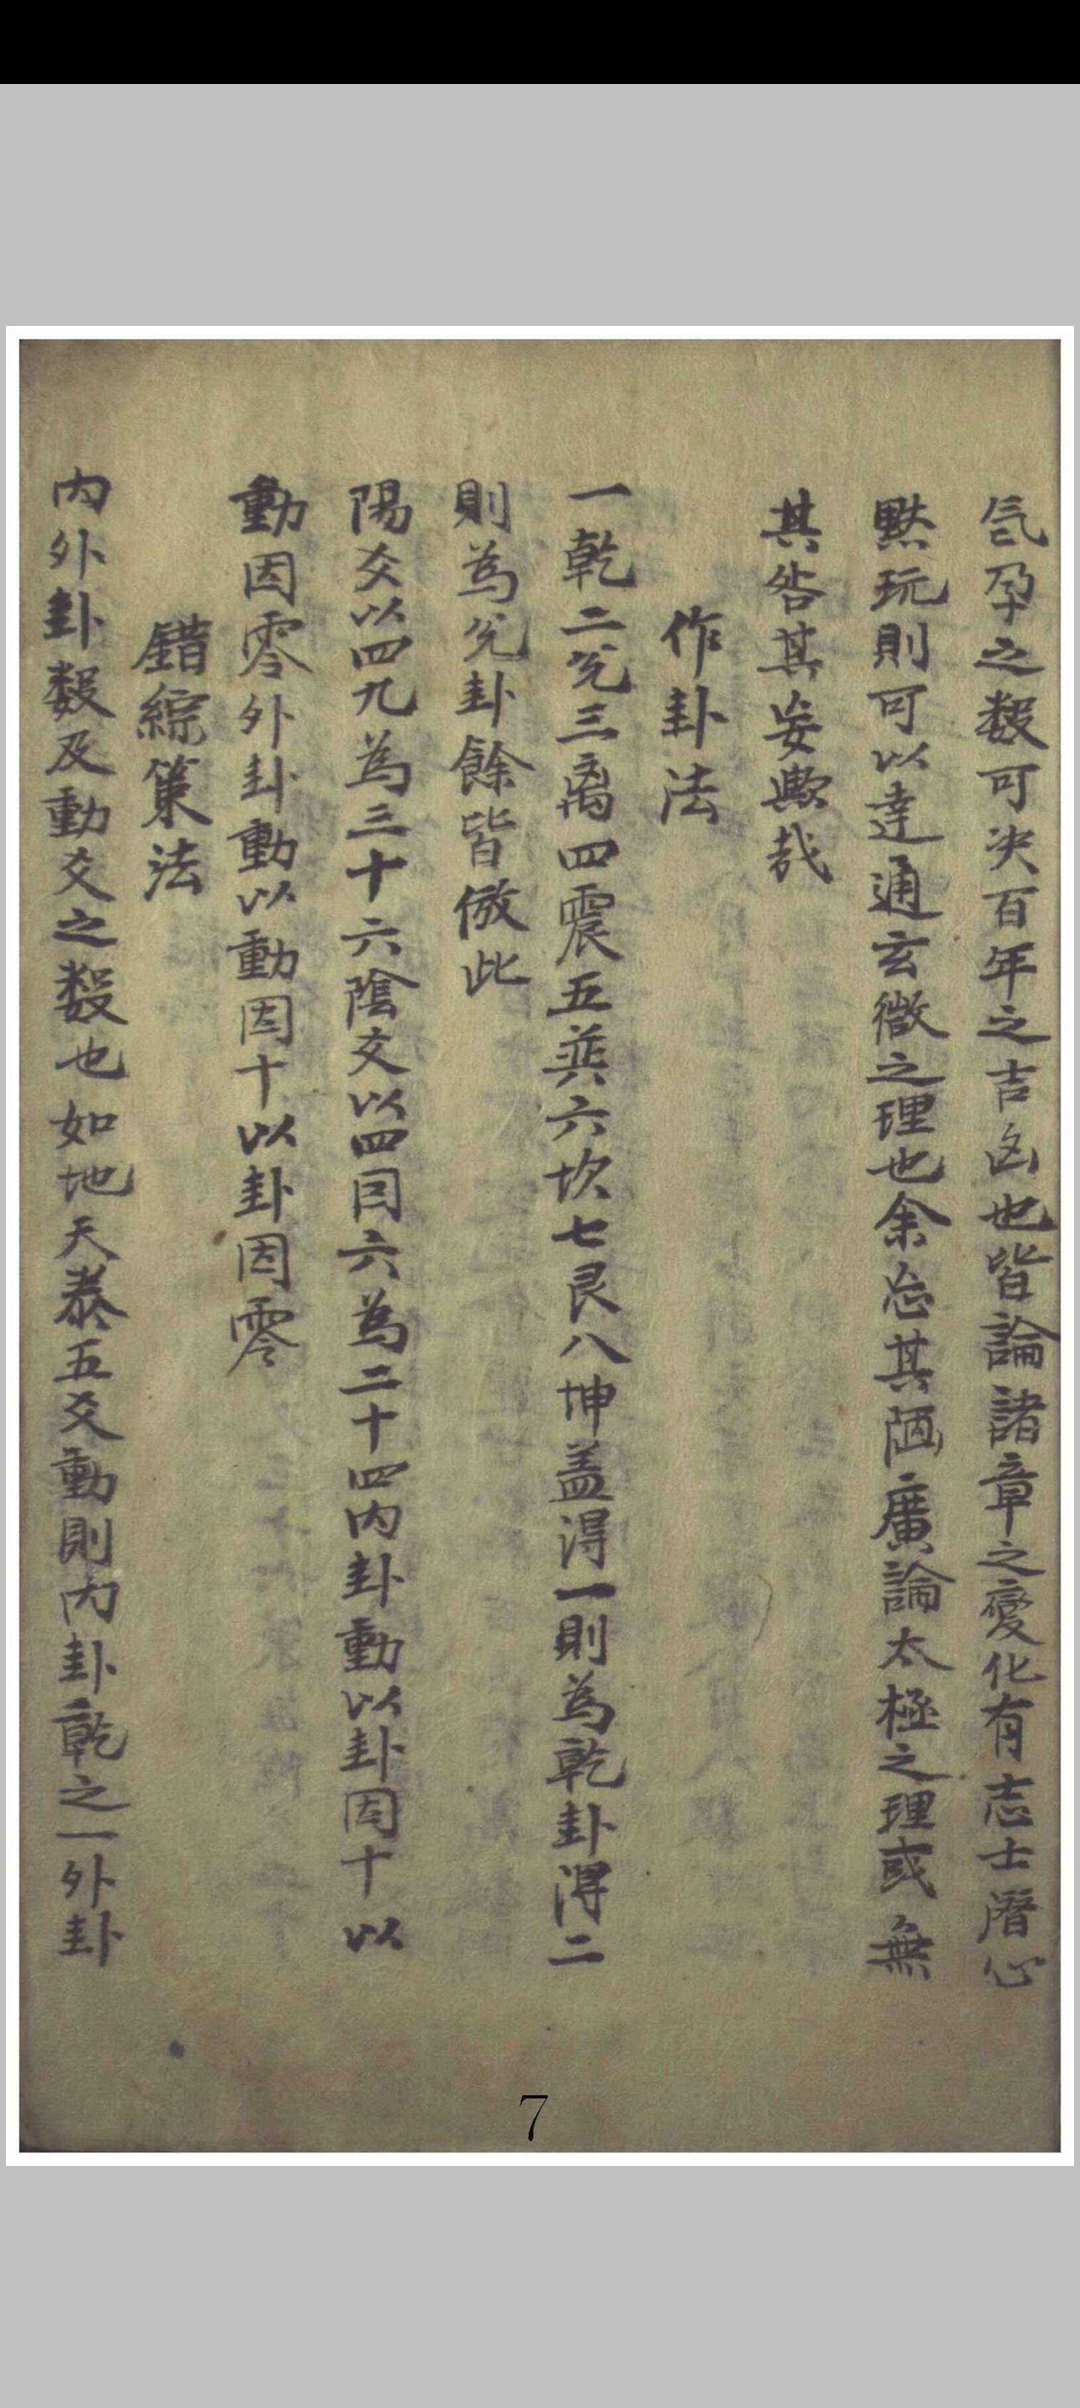 氣孕之数可决百年之吉凶也皆論諸章之變化有志士潛心
黙玩則可以達通玄微之理也余忘其陋廣論太極之理或無
其咎其妄歟哉
作卦法
一乾二兊三离四震五巽六坎七艮八坤盖淂一則為乾卦淂二
則為兊卦餘皆倣此
陽爻以四九為三十六陰爻以四因六為二十四内卦動以卦因十以
動因零外卦動以動因十以卦因零
錯綜策法
内外卦数及動爻之数也如地天泰五爻動則内卦乾之一外卦
7